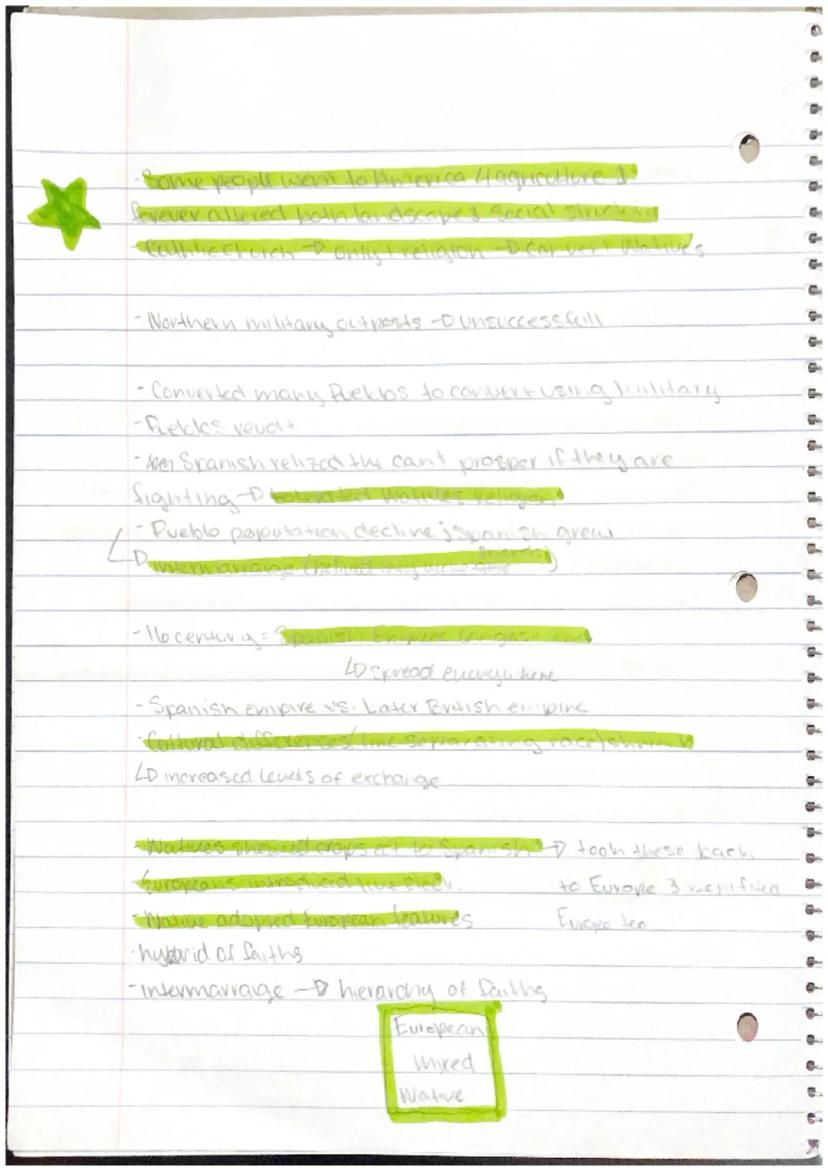 -Some people went to America 4 agriculture &
forever altered both landscape & social structure
-Catholic church → only religion → convert Natives
-Northern military outposts → unsuccessfull
-Converted many Pueblos to convert using military
-Pueblos revolt
-Spanish relized the can't prosper if they are
fighting → tolerated Natives religion
-Pueblo poputation decline; Spanish grew
↳ intermarraige
-16 century = Spanish Empire largest and
↳ spread everywhere
-Spanish empire vs. Later British empire
-Cultural differences/line separating race) shrink
↳ increased levels of exchange
-Natives showed crops ect to Spanish → took these back
-Europeans introduced live stock. to Europe & benifited
-Native adopted European features Europe too
-hybrid of faiths
-intermarraige → hierarchy of faiths
European
Mixed
Native